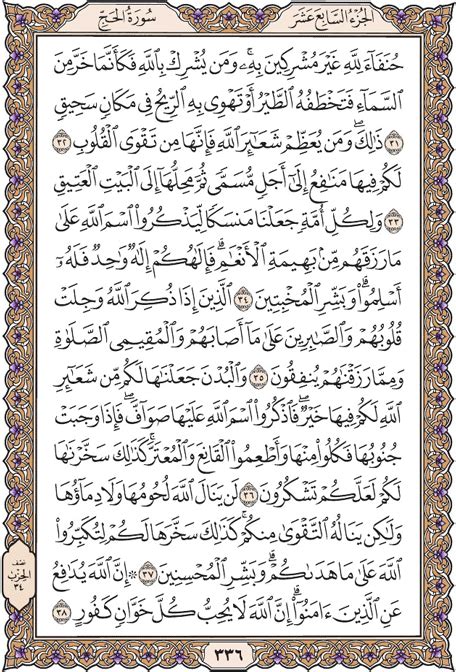 الجزء السابع عشر
سورة الحج
حُنَفَآءَ لِلَّهِ غَيْرَ مُشْرِكِينَ بِهِۦۚ وَمَن يُشْرِكْ بِٱللَّهِ فَكَأَنَّمَا خَرَّ مِنَ
ٱلسَّمَآءِ فَتَخْطَفُهُ ٱلطَّيْرُ أَوْ تَهْوِى بِهِ ٱلرِّيحُ فِى مَكَانٍ سَحِيقٍ
٣١ ذَٰلِكَۖ وَمَن يُعَظِّمْ شَعَـٰٓئِرَ ٱللَّهِ فَإِنَّهَا مِن تَقْوَى ٱلْقُلُوبِ ٣٢
لَكُمْ فِيهَا مَنَـٰفِعُ إِلَىٰٓ أَجَلٍ مُّسَمًّى ثُمَّ مَحِلُّهَآ إِلَى ٱلْبَيْتِ ٱلْعَتِيقِ
٣٣ وَلِكُلِّ أُمَّةٍ جَعَلْنَا مَنسَكًا لِّيَذْكُرُوا۟ ٱسْمَ ٱللَّهِ عَلَىٰ
مَا رَزَقَهُم مِّنۢ بَهِيمَةِ ٱلْأَنْعَـٰمِۗ فَإِلَـٰهُكُمْ إِلَـٰهٌ وَٰحِدٌ فَلَهُۥٓ
أَسْلِمُوا۟ۗ وَبَشِّرِ ٱلْمُخْبِتِينَ ٣٤ ٱلَّذِينَ إِذَا ذُكِرَ ٱللَّهُ وَجِلَتْ
قُلُوبُهُمْ وَٱلصَّـٰبِرِينَ عَلَىٰ مَآ أَصَابَهُمْ وَٱلْمُقِيمِى ٱلصَّلَوٰةِ
وَمِمَّا رَزَقْنَـٰهُمْ يُنفِقُونَ ٣٥ وَٱلْبُدْنَ جَعَلْنَـٰهَا لَكُم مِّن شَعَـٰٓئِرِ
ٱللَّهِ لَكُمْ فِيهَا خَيْرٌۖ فَٱذْكُرُوا۟ ٱسْمَ ٱللَّهِ عَلَيْهَا صَوَآفَّۖ فَإِذَا وَجَبَتْ
جُنُوبُهَا فَكُلُوا۟ مِنْهَا وَأَطْعِمُوا۟ ٱلْقَانِعَ وَٱلْمُعْتَرَّۚ كَذَٰلِكَ سَخَّرْنَـٰهَا
لَكُمْ لَعَلَّكُمْ تَشْكُرُونَ ٣٦ لَن يَنَالَ ٱللَّهَ لُحُومُهَا وَلَا دِمَآؤُهَا
وَلَـٰكِن يَنَالُهُ ٱلتَّقْوَىٰ مِنكُمْۚ كَذَٰلِكَ سَخَّرَهَا لَكُمْ لِتُكَبِّرُوا۟
ٱللَّهَ عَلَىٰ مَا هَدَىٰكُمْۗ وَبَشِّرِ ٱلْمُحْسِنِينَ ٣٧ ۞ إِنَّ ٱللَّهَ يُدَٰفِعُ
عَنِ ٱلَّذِينَ ءَامَنُوٓا۟ۗ إِنَّ ٱللَّهَ لَا يُحِبُّ كُلَّ خَوَّانٍ كَفُورٍ ٣٨
نصف
الحزب
٣٤
٣٣٦